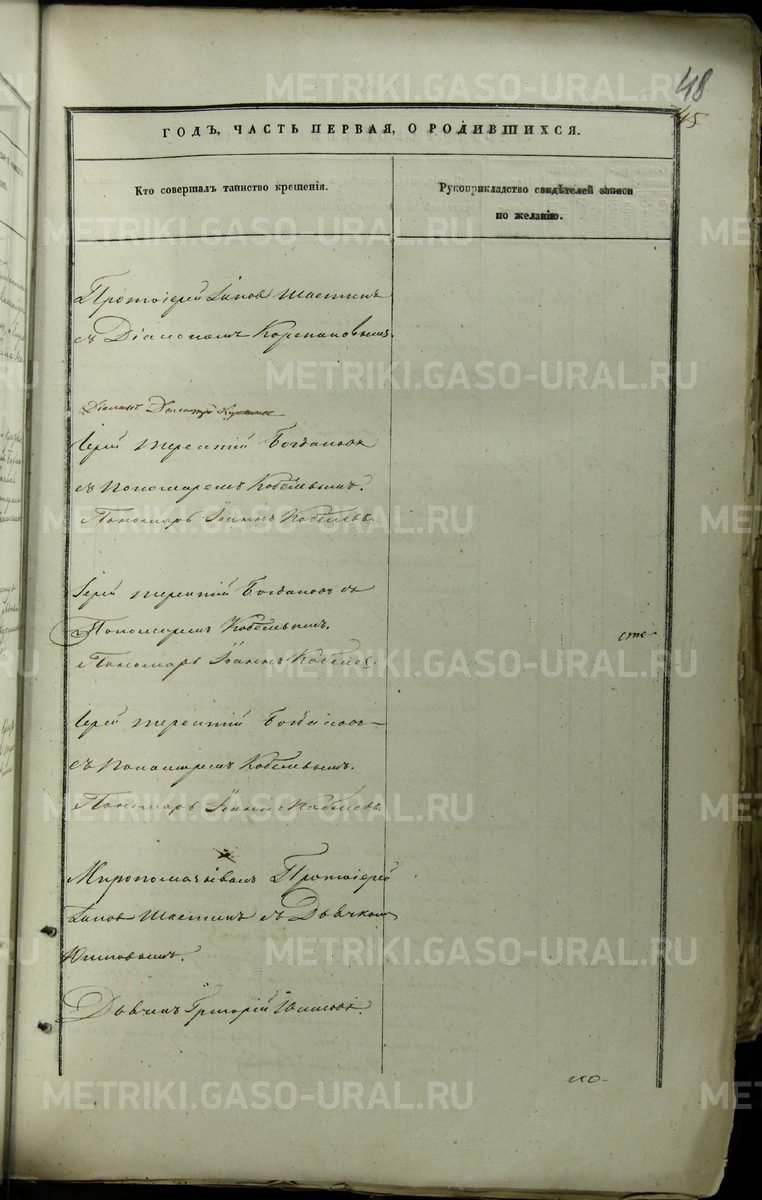 48
45
ГОДЪ, ЧАСТЬ ПЕРВАЯ, О РОДИВШИХСЯ.
Кто совершалъ таинство крещенія.
Рукоприкладство свидѣтелей записи
по желанію.
Протоіерей Іаковъ Шастинъ
съ Діакономъ Корепановымъ.
Діаконъ Димитрій
Іерей Терентій Богдановъ
съ Пономаремъ Кобелевымъ.
Пономарь Іоаннъ Кобелевъ.
Іерей Терентій Богдановъ съ
Пономаремъ Кобелевымъ.
Пономарь Іоаннъ Кобелевъ.
Іерей Терентій Богдановъ
съ Пономаремъ Кобелевымъ.
Пономарь Іоаннъ Кобелевъ.
Миропомазывалъ Протоіерей
Іаковъ Шастинъ съ Дьячкомъ
Дьячекъ Григорій
METRIKI.GASO-URAL.RU